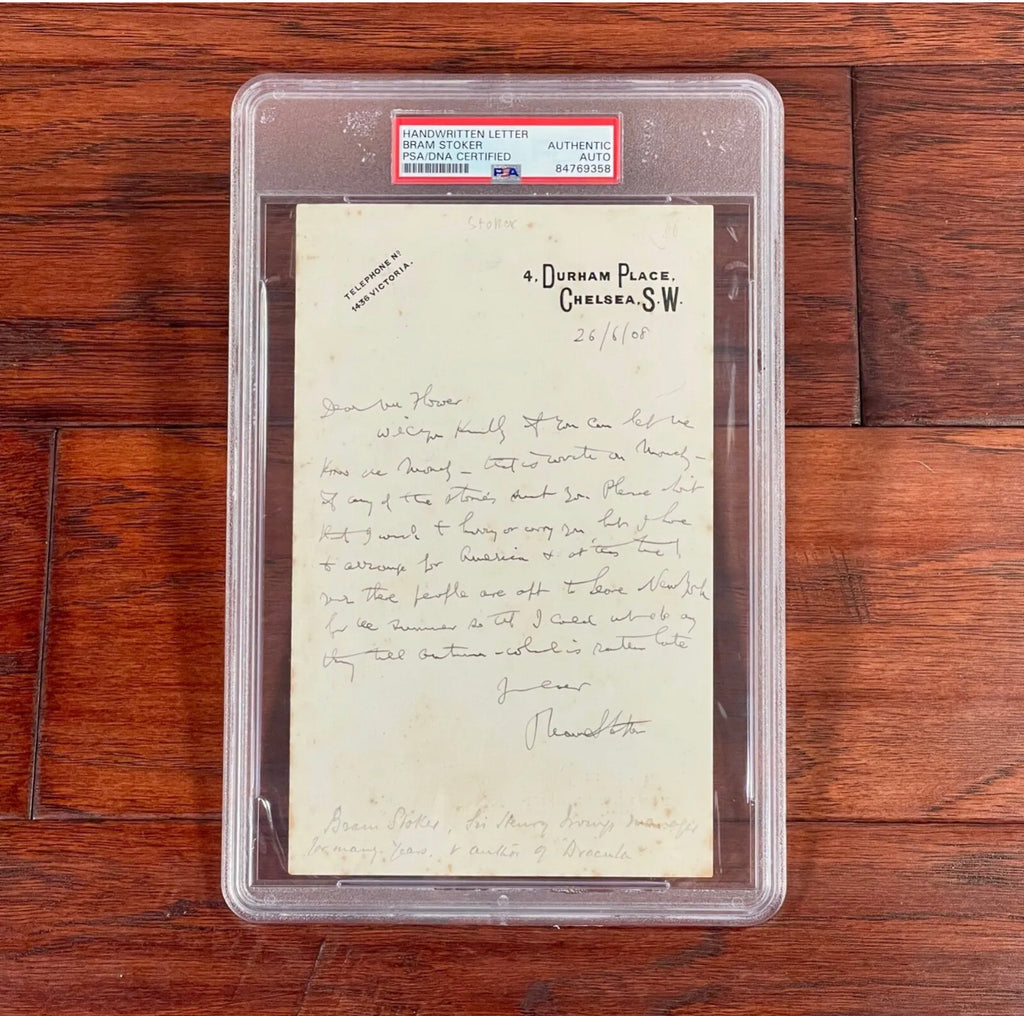 HANDWRITTEN LETTER
BRAM STOKER AUTHENTIC
PSA/DNA CERTIFIED AUTO
PSA 84769358
Stoker
TELEPHONE Nº
1436 VICTORIA.
4, DURHAM PLACE,
CHELSEA, S.W.
26/6/08
Dear Mr Flower
Will you kindly if you can let me
know on Monday – that is write on Monday –
if any of the stories suit you. Please don't
that I want to hurry or worry you but I have
to arrange for America & at this time
over there people are apt to leave New York
for the summer so that I could not do any
thing till autumn – which is rather late
Yours ever
Bram Stoker
Bram Stoker, Sir Henry Irving's manager
for many years, & author of Dracula